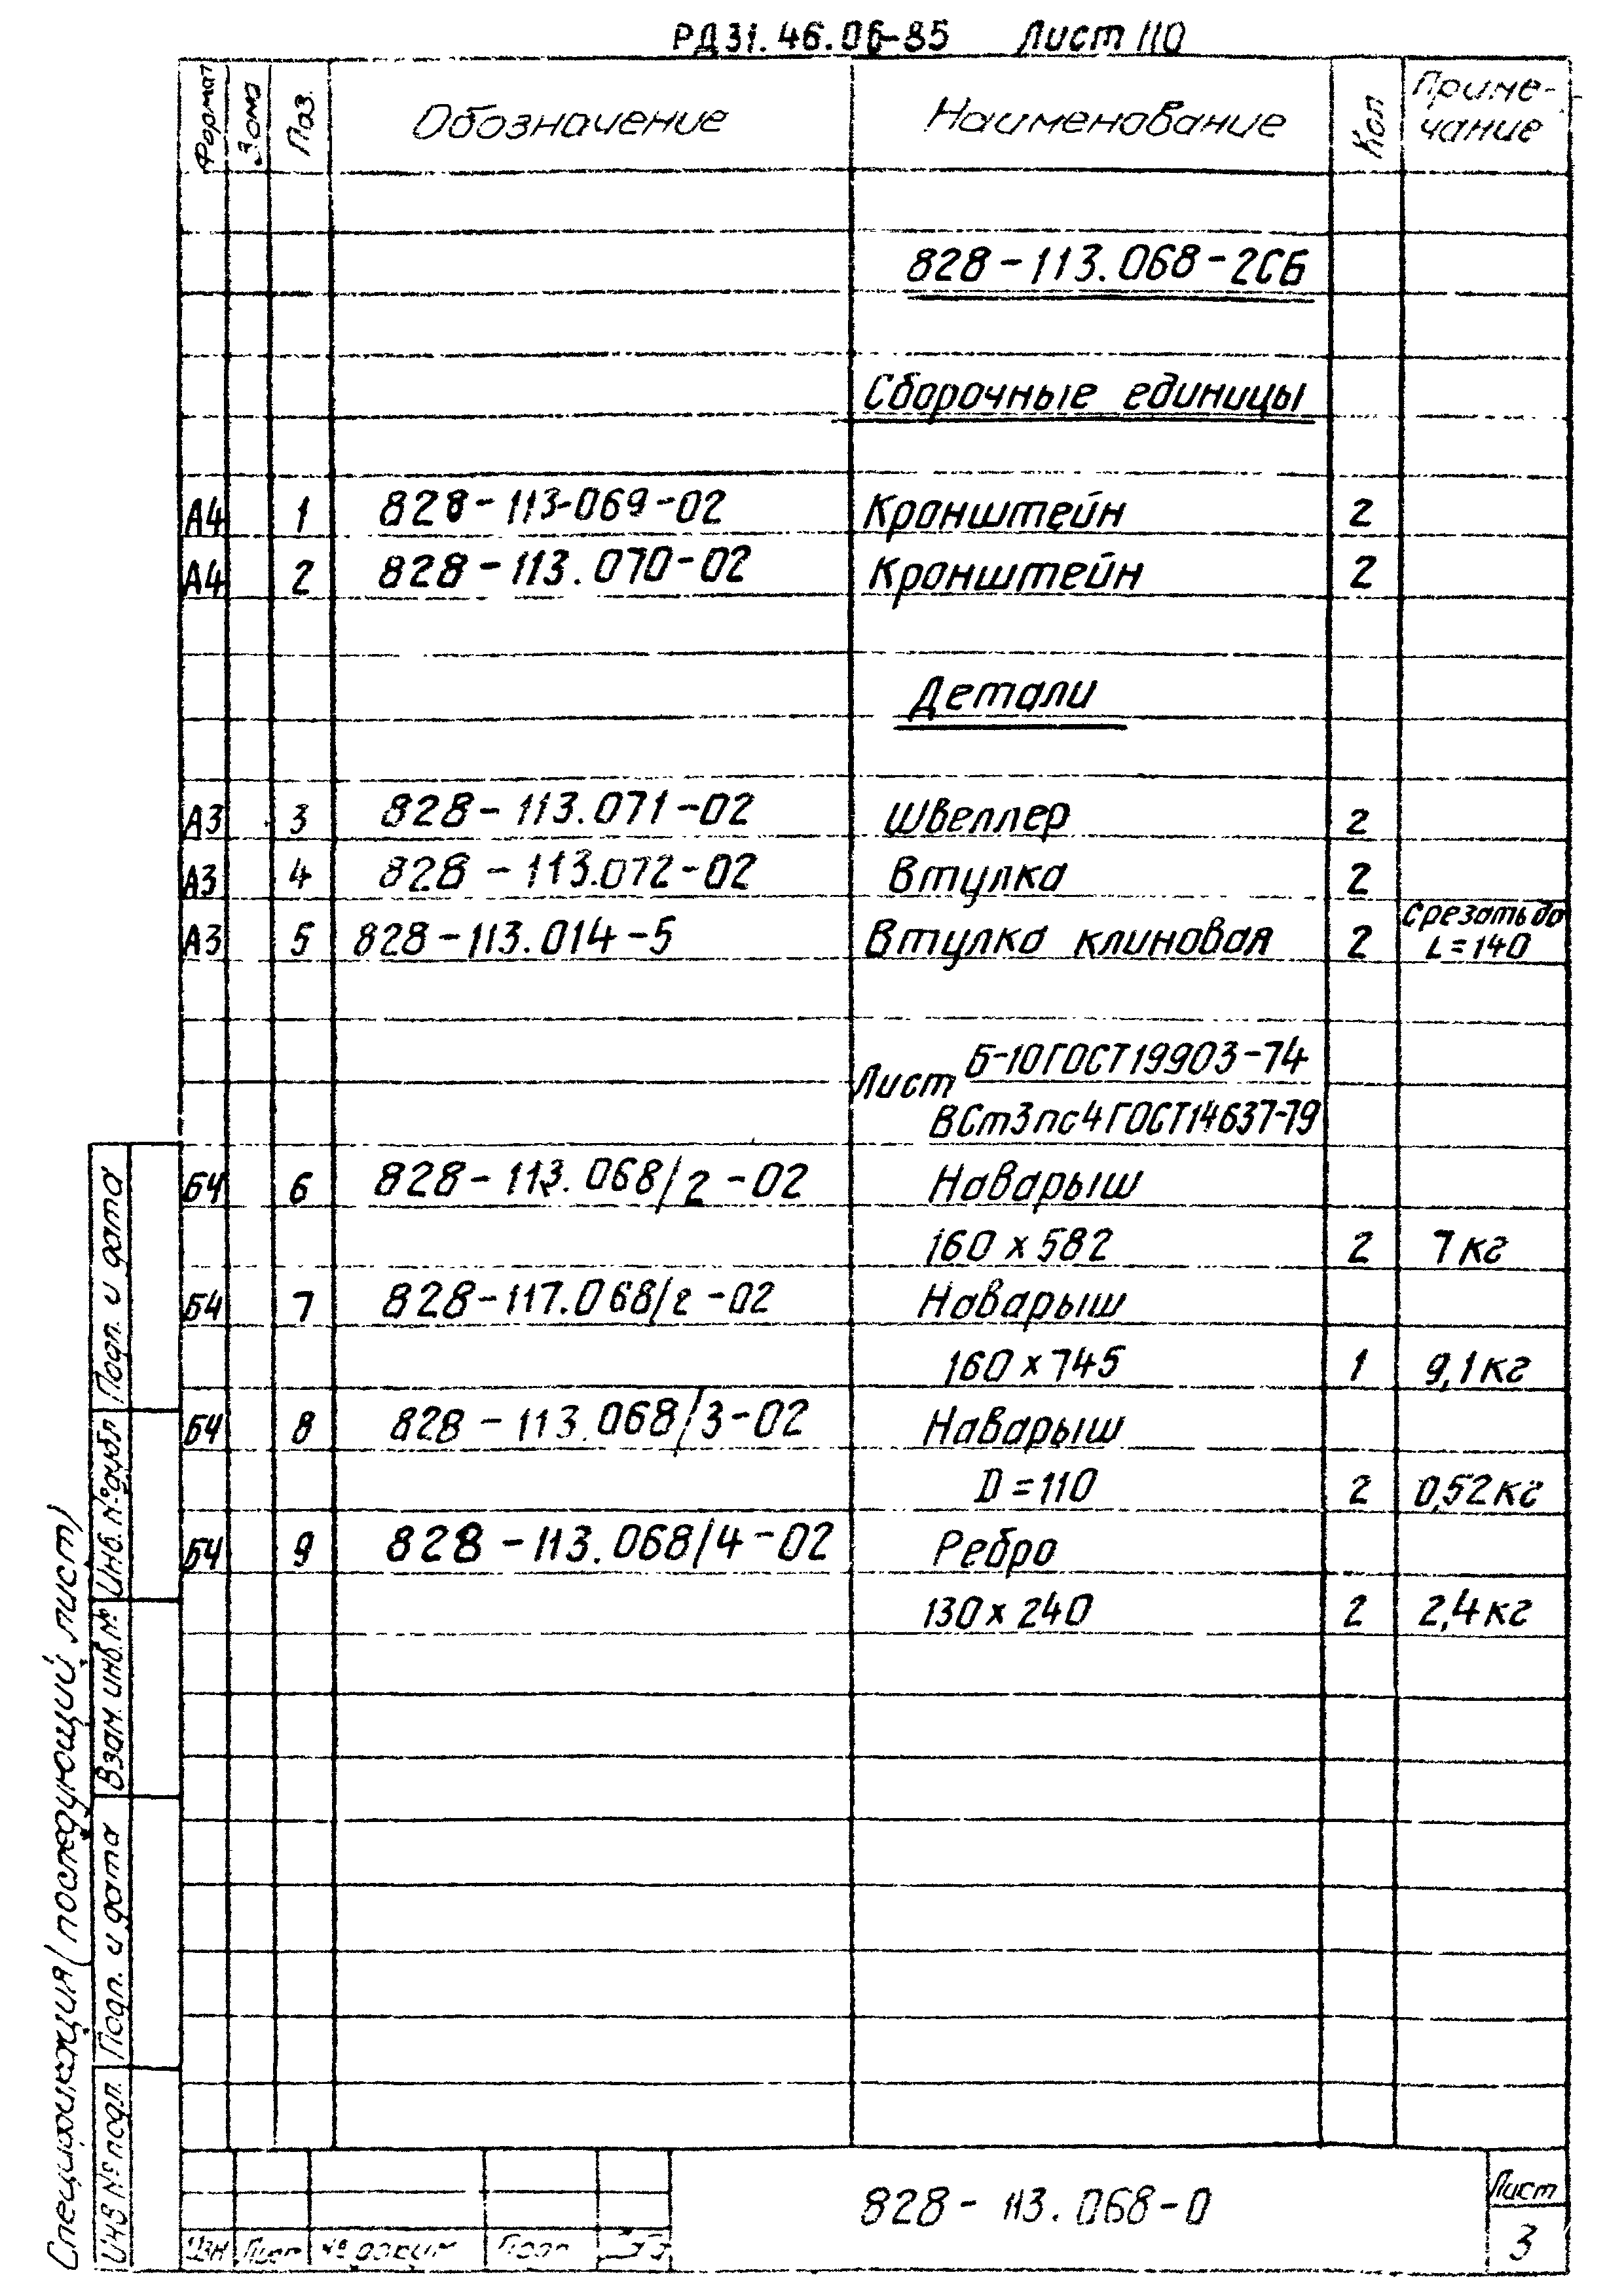 РД31.46.06-85 Лист 110
Формат Зона Поз. Обозначение Наименование Кол Приме-
чание
828-113.068-2СБ
Сборочные единицы
А4 1 828-113-069-02 Кронштейн 2
А4 2 828-113.070-02 Кронштейн 2
Детали
А3 3 828-113.071-02 Швеллер 2
А3 4 828-113.072-02 Втулка 2
А3 5 828-113.014-5 Втулка клиновая 2 Срезать до
L=140
Лист Б-10 ГОСТ 19903-74
ВСт3пс4 ГОСТ 14637-79
БЧ 6 828-113.068/2-02 Наварыш
160 х 582 2 7 кг
БЧ 7 828-117.068/2-02 Наварыш
160 х 745 1 9,1 кг
БЧ 8 828-113.068/3-02 Наварыш
D=110 2 0,52 кг
БЧ 9 828-113.068/4-02 Ребро
130 х 240 2 2,4 кг
Спецификация (последующий лист)
Подп. и дата
Инв. № дубл
Взам. инв. №
Подп. и дата
Инв № подл.
Изм Лист № докум Подп
828-113.068-0
Лист
3